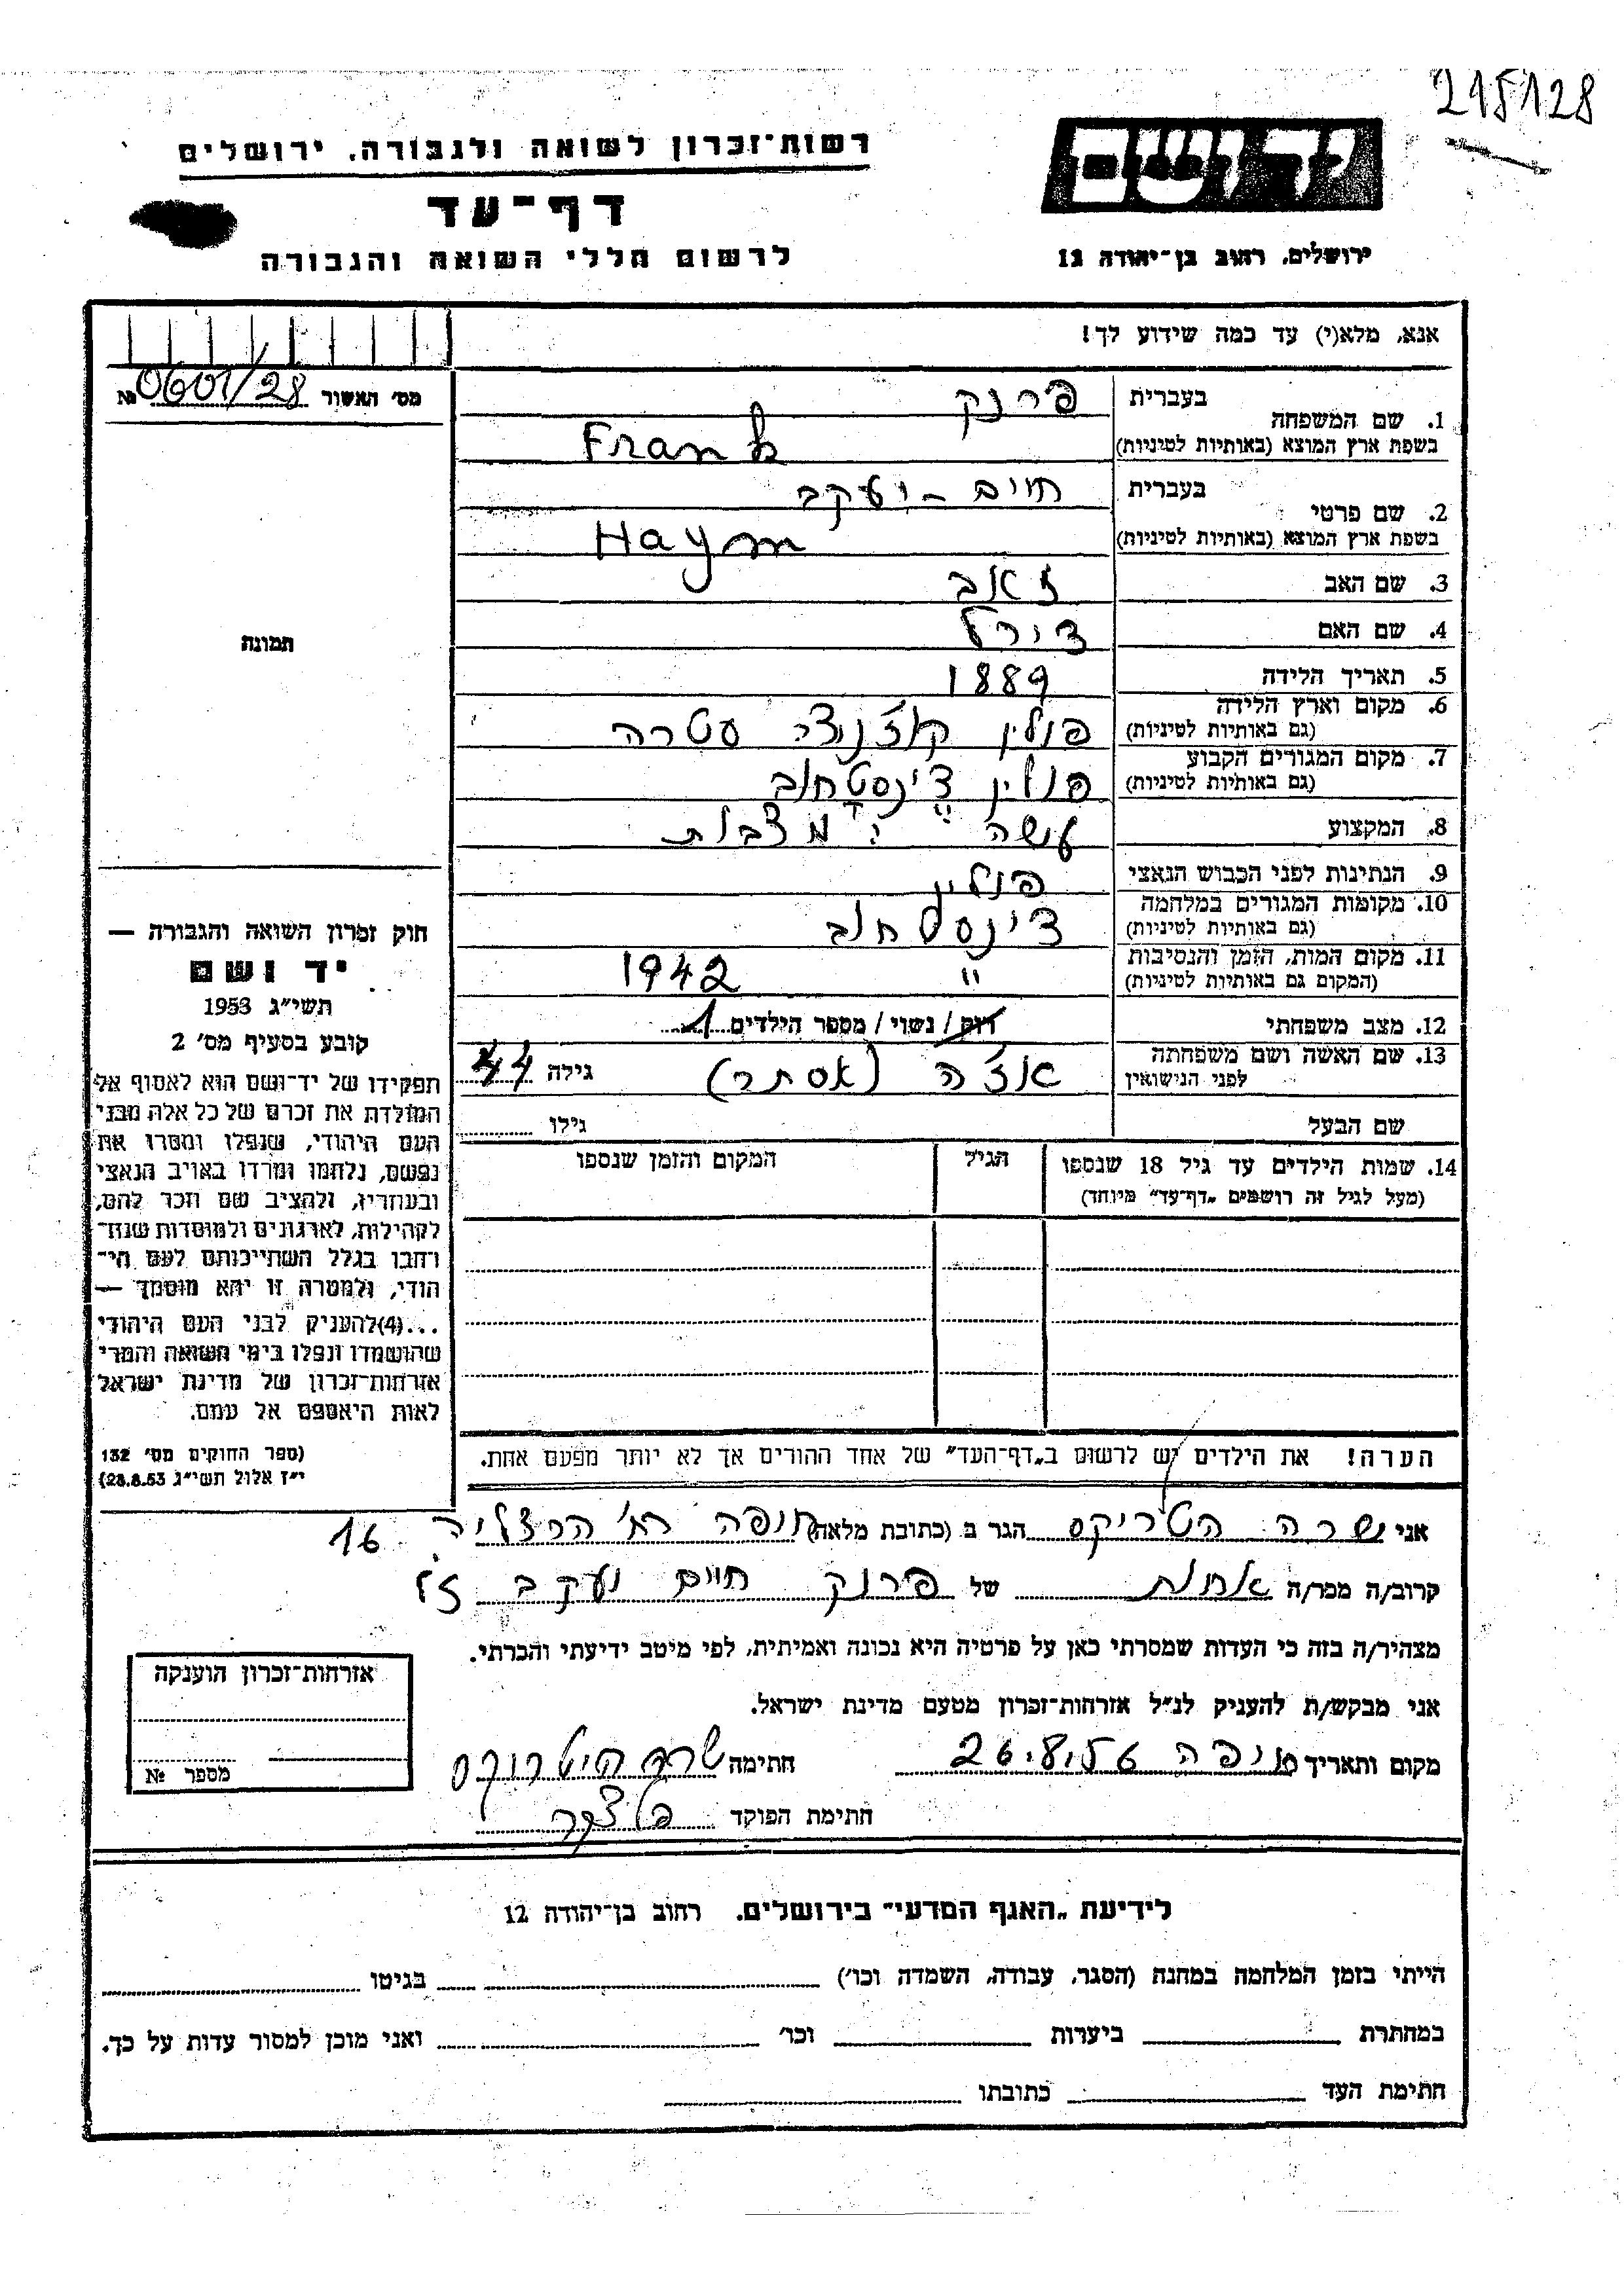 215128
רשות־זכרון לשואה ולגבורה, ירושלים
יד ושם
דף־עד
לרשום חללי השואה והגבורה
ירושלים, רחוב בן־יהודה 12
אנא, מלא(י) עד כמה שידוע לך!
מס׳ האשור № 0601/28
בעברית פרנק
1. שם המשפחה
בשפת ארץ המוצא (באותיות לטיניות) Frank
בעברית חיים - יעקב
2. שם פרטי
בשפת ארץ המוצא (באותיות לטיניות) Haym
3. שם האב זאב
4. שם האם צירל
תמונה
5. תאריך הלידה 1889
6. מקום וארץ הלידה
(גם באותיות לטיניות) פולין
7. מקום המגורים הקבוע
(גם באותיות לטיניות) פולין צ'ינסטחוב
8. המקצוע עושה מצבות
9. הנתינות לפני הכבוש הנאצי פולין
10. מקומות המגורים במלחמה
(גם באותיות לטיניות) צ'ינסטחוב
11. מקום המות, הזמן והנסיבות
(המקום גם באותיות לטיניות) " 1942
12. מצב משפחתי רוק / נשוי / מספר הילדים 1
13. שם האשה ושם משפחתה
לפני הנישואין (אסתר) גילה 44
שם הבעל גילו
14. שמות הילדים עד גיל 18 שנספו
(מעל לגיל זה רושמים „דף־עד״ מיוחד)
הגיל
המקום והזמן שנספו
הערה! את הילדים יש לרשום ב„דף־העד״ של אחד ההורים אך לא יותר מפעם אחת.
חוק זכרון השואה והגבורה —
יד ושם
תשי״ג 1953
קובע בסעיף מס׳ 2
תפקידו של יד־ושם הוא לאסוף אל
המולדת את זכרם של כל אלה מבני
העם היהודי, שנפלו ומסרו את
נפשם, נלחמו ומרדו באויב הנאצי
ובעוזריו, ולהציב שם וזכר להם,
לקהילות, לארגונים ולמוסדות שנח־
רחבו בגלל השתייכותם לעם הי־
הודי, ולמטרה זו יהא מוסמך —
...(4)להעניק לבני העם היהודי
שהושמדו ונפלו בימי השואה והמרי
אזרחות־זכרון של מדינת ישראל
לאות היאספם אל עמם.
(ספר החוקים מס׳ 132
י״ז אלול תשי״ג 28.8.53)
אני שרה הטריקס הגר ב (כתובת מלאה) חיפה רח׳ הרצליה 16
קרוב/ה מכר/ה אחות של פרנק חיים יעקב ז״ל
מצהיר/ה בזה כי העדות שמסרתי כאן על פרטיה היא נכונה ואמיתית, לפי מיטב ידיעתי והכרתי.
אני מבקש/ת להעניק לנ״ל אזרחות־זכרון מטעם מדינת ישראל.
מקום ותאריך חיפה 26.8.56 חתימה שרה
חתימת הפוקד
אזרחות־זכרון הוענקה
מספר №
לידיעת „האגף המדעי״ בירושלים, רחוב בן־יהודה 12
הייתי בזמן המלחמה במחנה (הסגר, עבודה, השמדה וכו׳) בגיטו
במחתרת ביערות וכו׳ ואני מוכן למסור עדות על כך.
חתימת העד כתובתו